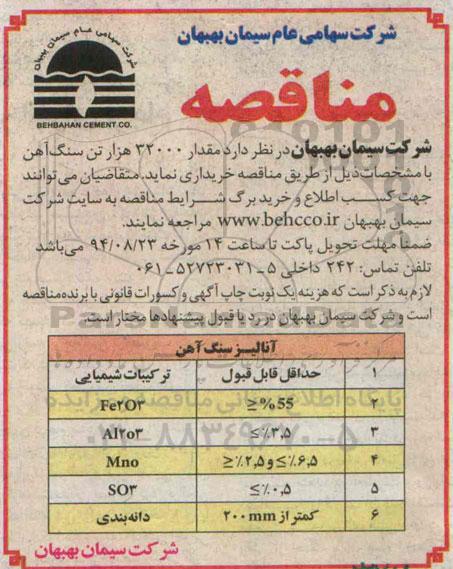 شرکت سهامی عام سیمان بهبهان
شرکت سهامی عام سیمان بهبهان
BEHBAHAN CEMENT CO.
مناقصه
شرکت سیمان بهبهان در نظر دارد مقدار ۳۲۰۰۰ هزار تن سنگ آهن
با مشخصات ذیل از طریق مناقصه خریداری نماید. متقاضیان می توانند
جهت کسب اطلاع و خرید برگ شرایط مناقصه به سایت شرکت
سیمان بهبهان www.behcco.ir مراجعه نمایند.
ضمناً مهلت تحویل پاکت تا ساعت ۱۴ مورخه ۹۴/۰۸/۲۳ می باشد
تلفن تماس: ۲۴۲ داخلی ۵ ـ ۵۲۷۲۳۰۳۱ ـ ۰۶۱
لازم به ذکر است که هزینه یک نوبت چاپ آگهی و کسورات قانونی با برنده مناقصه
است و شرکت سیمان بهبهان در رد یا قبول پیشنهادها مختار است.
آنالیز سنگ آهن
۱ حداقل قابل قبول ترکیبات شیمیایی
۲ ≤ %55 Fe۲O۳
۳ ≥٪۳,۵ Al۲o۳
۴ ≥٪۶,۵ و ≤٪۲,۵ Mno
۵ ≥٪۰,۵ SO۳
۶ کمتر از ۲۰۰ mm دانه بندی
شرکت سیمان بهبهان
پایگاه اطلاع رسانی مناقصه مزایده
۰۲۱-۸۸۳۴۹۶۷۰-۵